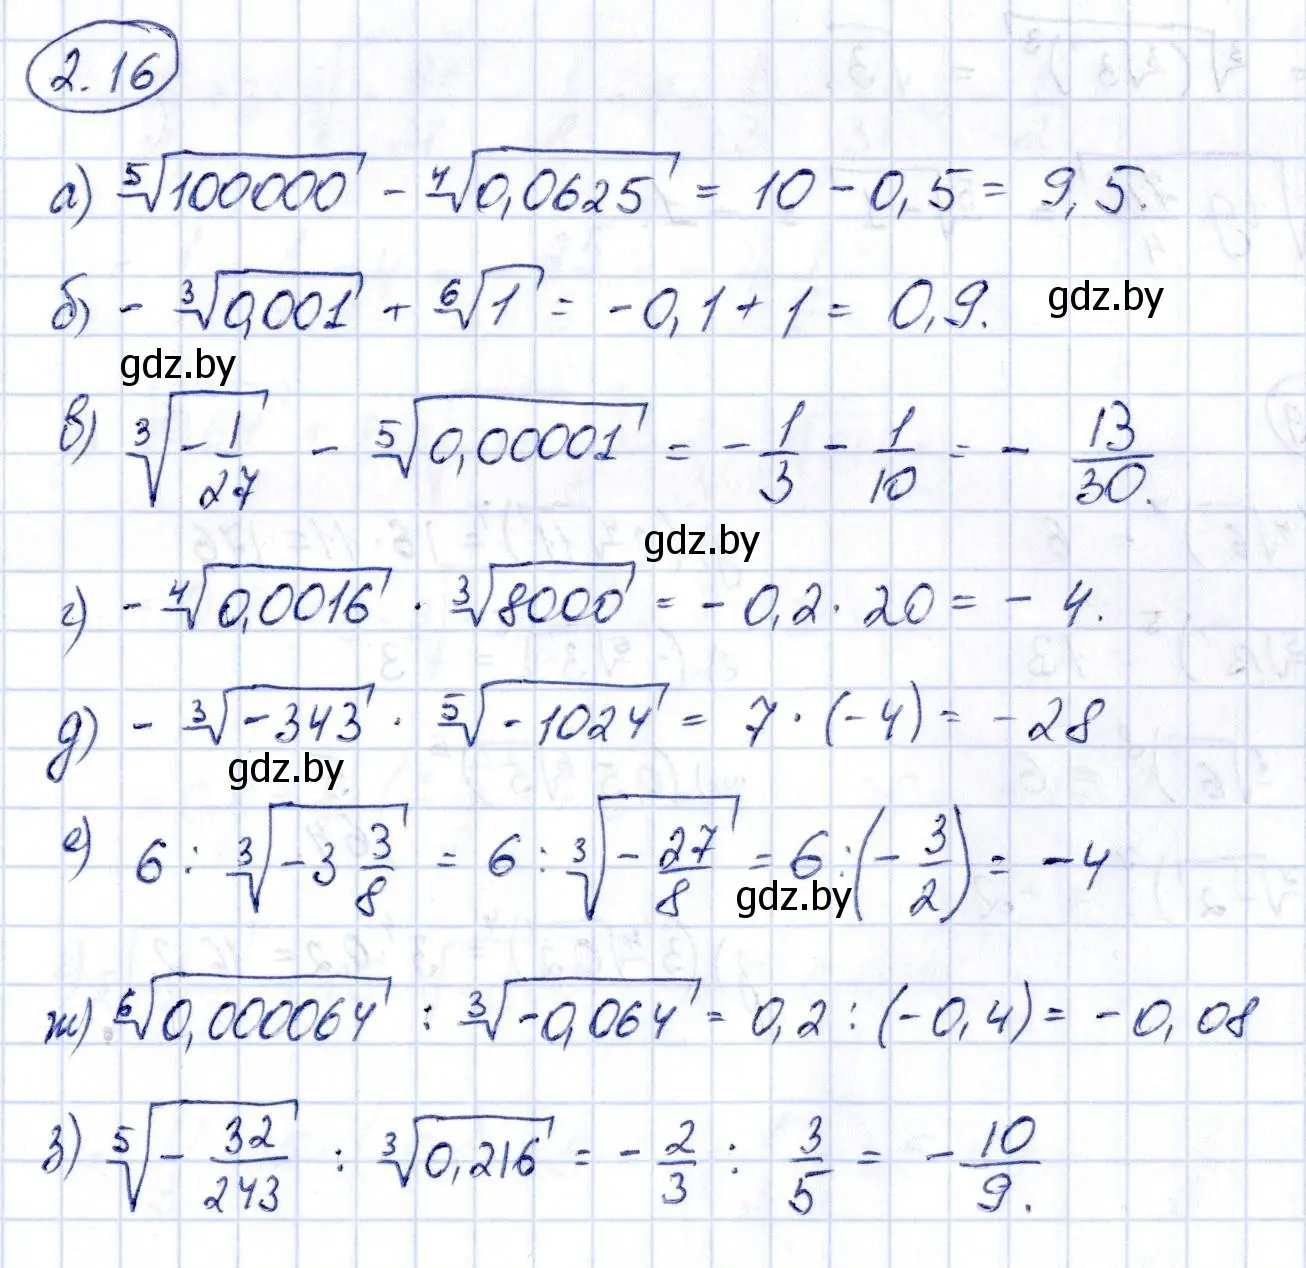 2.16
а) ⁵√100000 - ⁴√0,0625 = 10 - 0,5 = 9,5.
б) - ³√0,001 + ⁶√1 = -0,1 + 1 = 0,9.
gdz.by
gdz.by
в) ³√(-1/27) - ⁵√0,00001 = -1/3 - 1/10 = - 13/30.
gdz.by
г) - ⁴√0,0016 · ³√8000 = -0,2 · 20 = -4.
д) - ³√-343 · ⁵√-1024 = 7 · (-4) = -28
gdz.by
е) 6 : ³√(-3 3/8) = 6 : ³√(-27/8) = 6 : (-3/2) = -4
gdz.by
ж) ⁶√0,000064 : ³√-0,064 = 0,2 : (-0,4) = -0,08
з) ⁵√(-32/243) : ³√0,216 = -2/3 : 3/5 = -10/9.